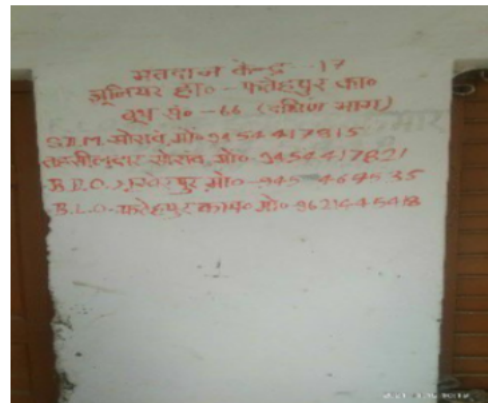 मतदान केन्द्र -17
जूनियर हा० - फतेहपुर का०
बूथ सं० -66 (दक्षिण भाग)
S.D.M. सोरांव मो० 9454417815
तहसीलदार सोरांव मो० 9454417821
मो० -945
B.L.O. फतेहपुर काय० मो० 9621645418